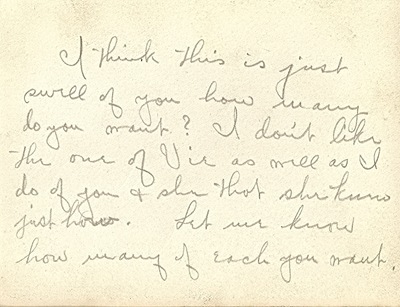 I think this is just
swell of you how many
do you want? I don't like
the one of Vie as well as I
do of you & she that she know
just how. Let me know
how many of each you want.